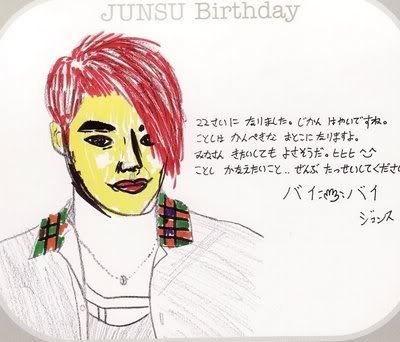 JUNSU Birthday
22さいに なりました。じかん はやいですね。
ことしは かんぺきな おとこになりますよ。
みなさん きたいしても よさそうだ。ヒヒヒ ^^
ことし かなえたいこと.. ぜんぶ たっせいしてくださ
バイ バイ
ジュンス